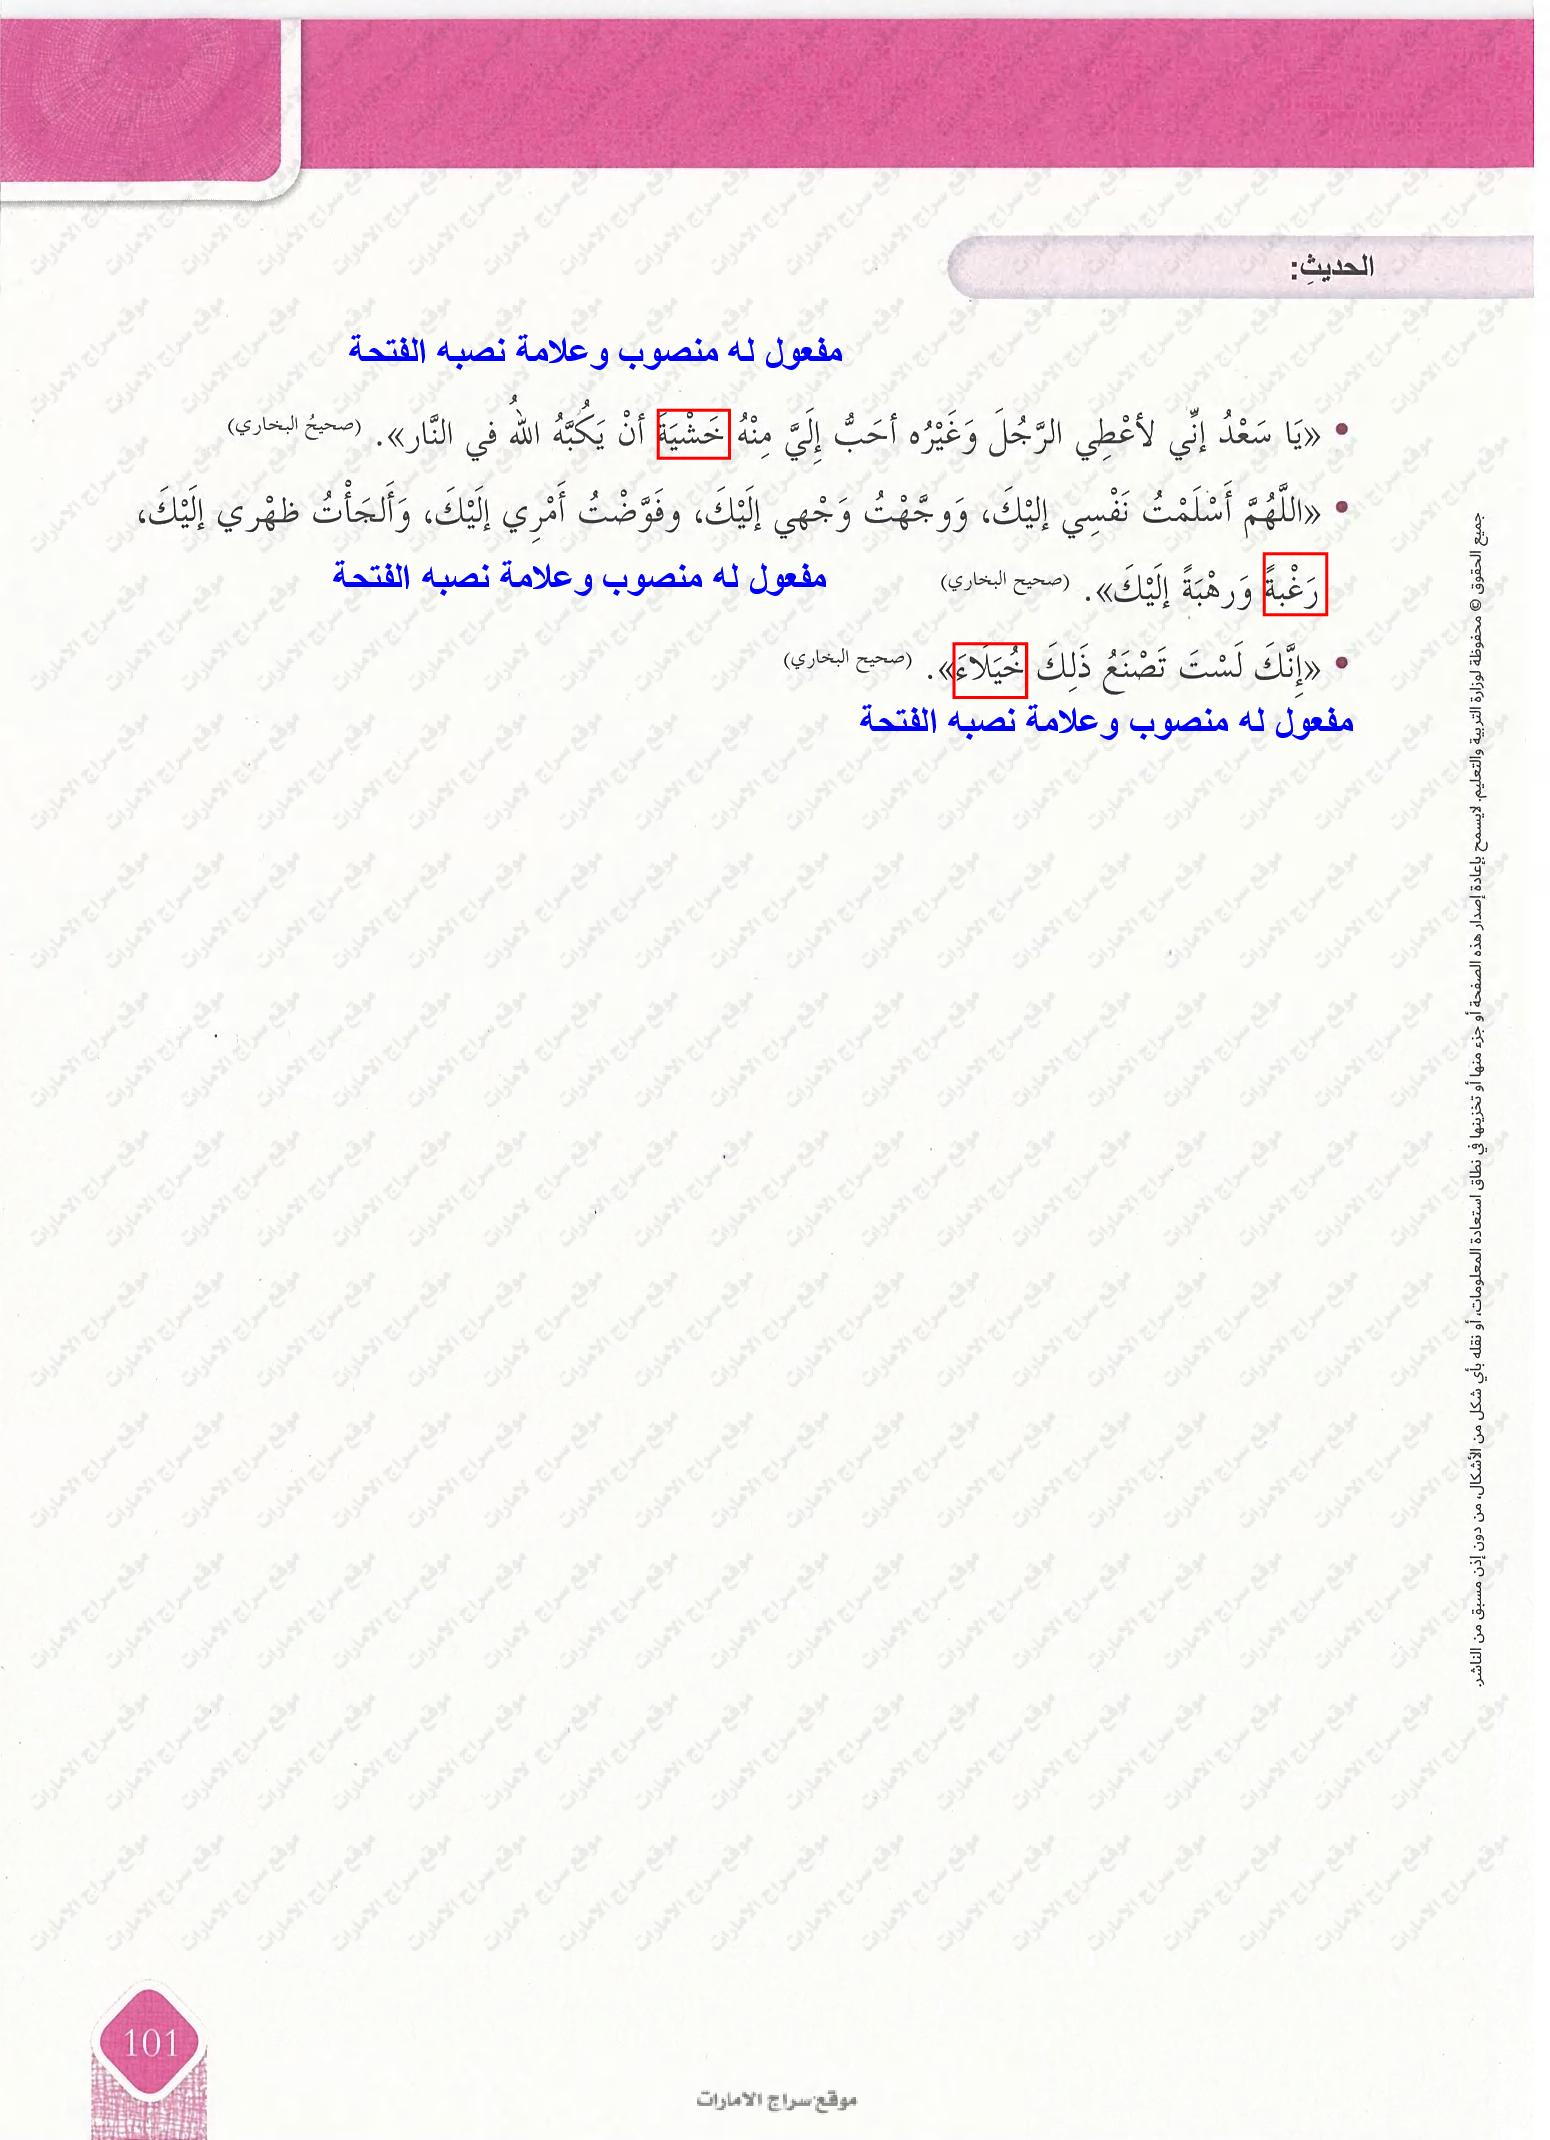 الحديثِ:
مفعول له منصوب وعلامة نصبه الفتحة
• «يَا سَعْدُ إنِّي لأعْطِي الرَّجُلَ وَغَيْرُه أحَبُّ إِلَيَّ مِنْهُ خَشْيَةَ أنْ يَكُبَّهُ اللهُ في النَّار». (صحيحُ البخاري)
• «اللَّهُمَّ أَسْلَمْتُ نَفْسِي إليْكَ، وَوجَّهْتُ وَجْهي إلَيْكَ، وفَوَّضْتُ أَمْرِي إلَيْكَ، وَأَلجَأْتُ ظهْري إلَيْكَ،
رَغْبةً وَرهْبَةً إلَيْكَ». (صحيح البخاري) مفعول له منصوب وعلامة نصبه الفتحة
• «إِنَّكَ لَسْتَ تَصْنَعُ ذَلِكَ خُيَلَاءَ». (صحيح البخاري)
مفعول له منصوب وعلامة نصبه الفتحة
جميع الحقوق © محفوظة لوزارة التربية والتعليم. لايسمح بإعادة إصدار هذه الصفحة أو جزء منها أو تخزينها في نطاق استعادة المعلومات، أو نقله بأي شكل من الأشكال، من دون إذن مسبق من الناشر.
101
موقع سراج الامارات